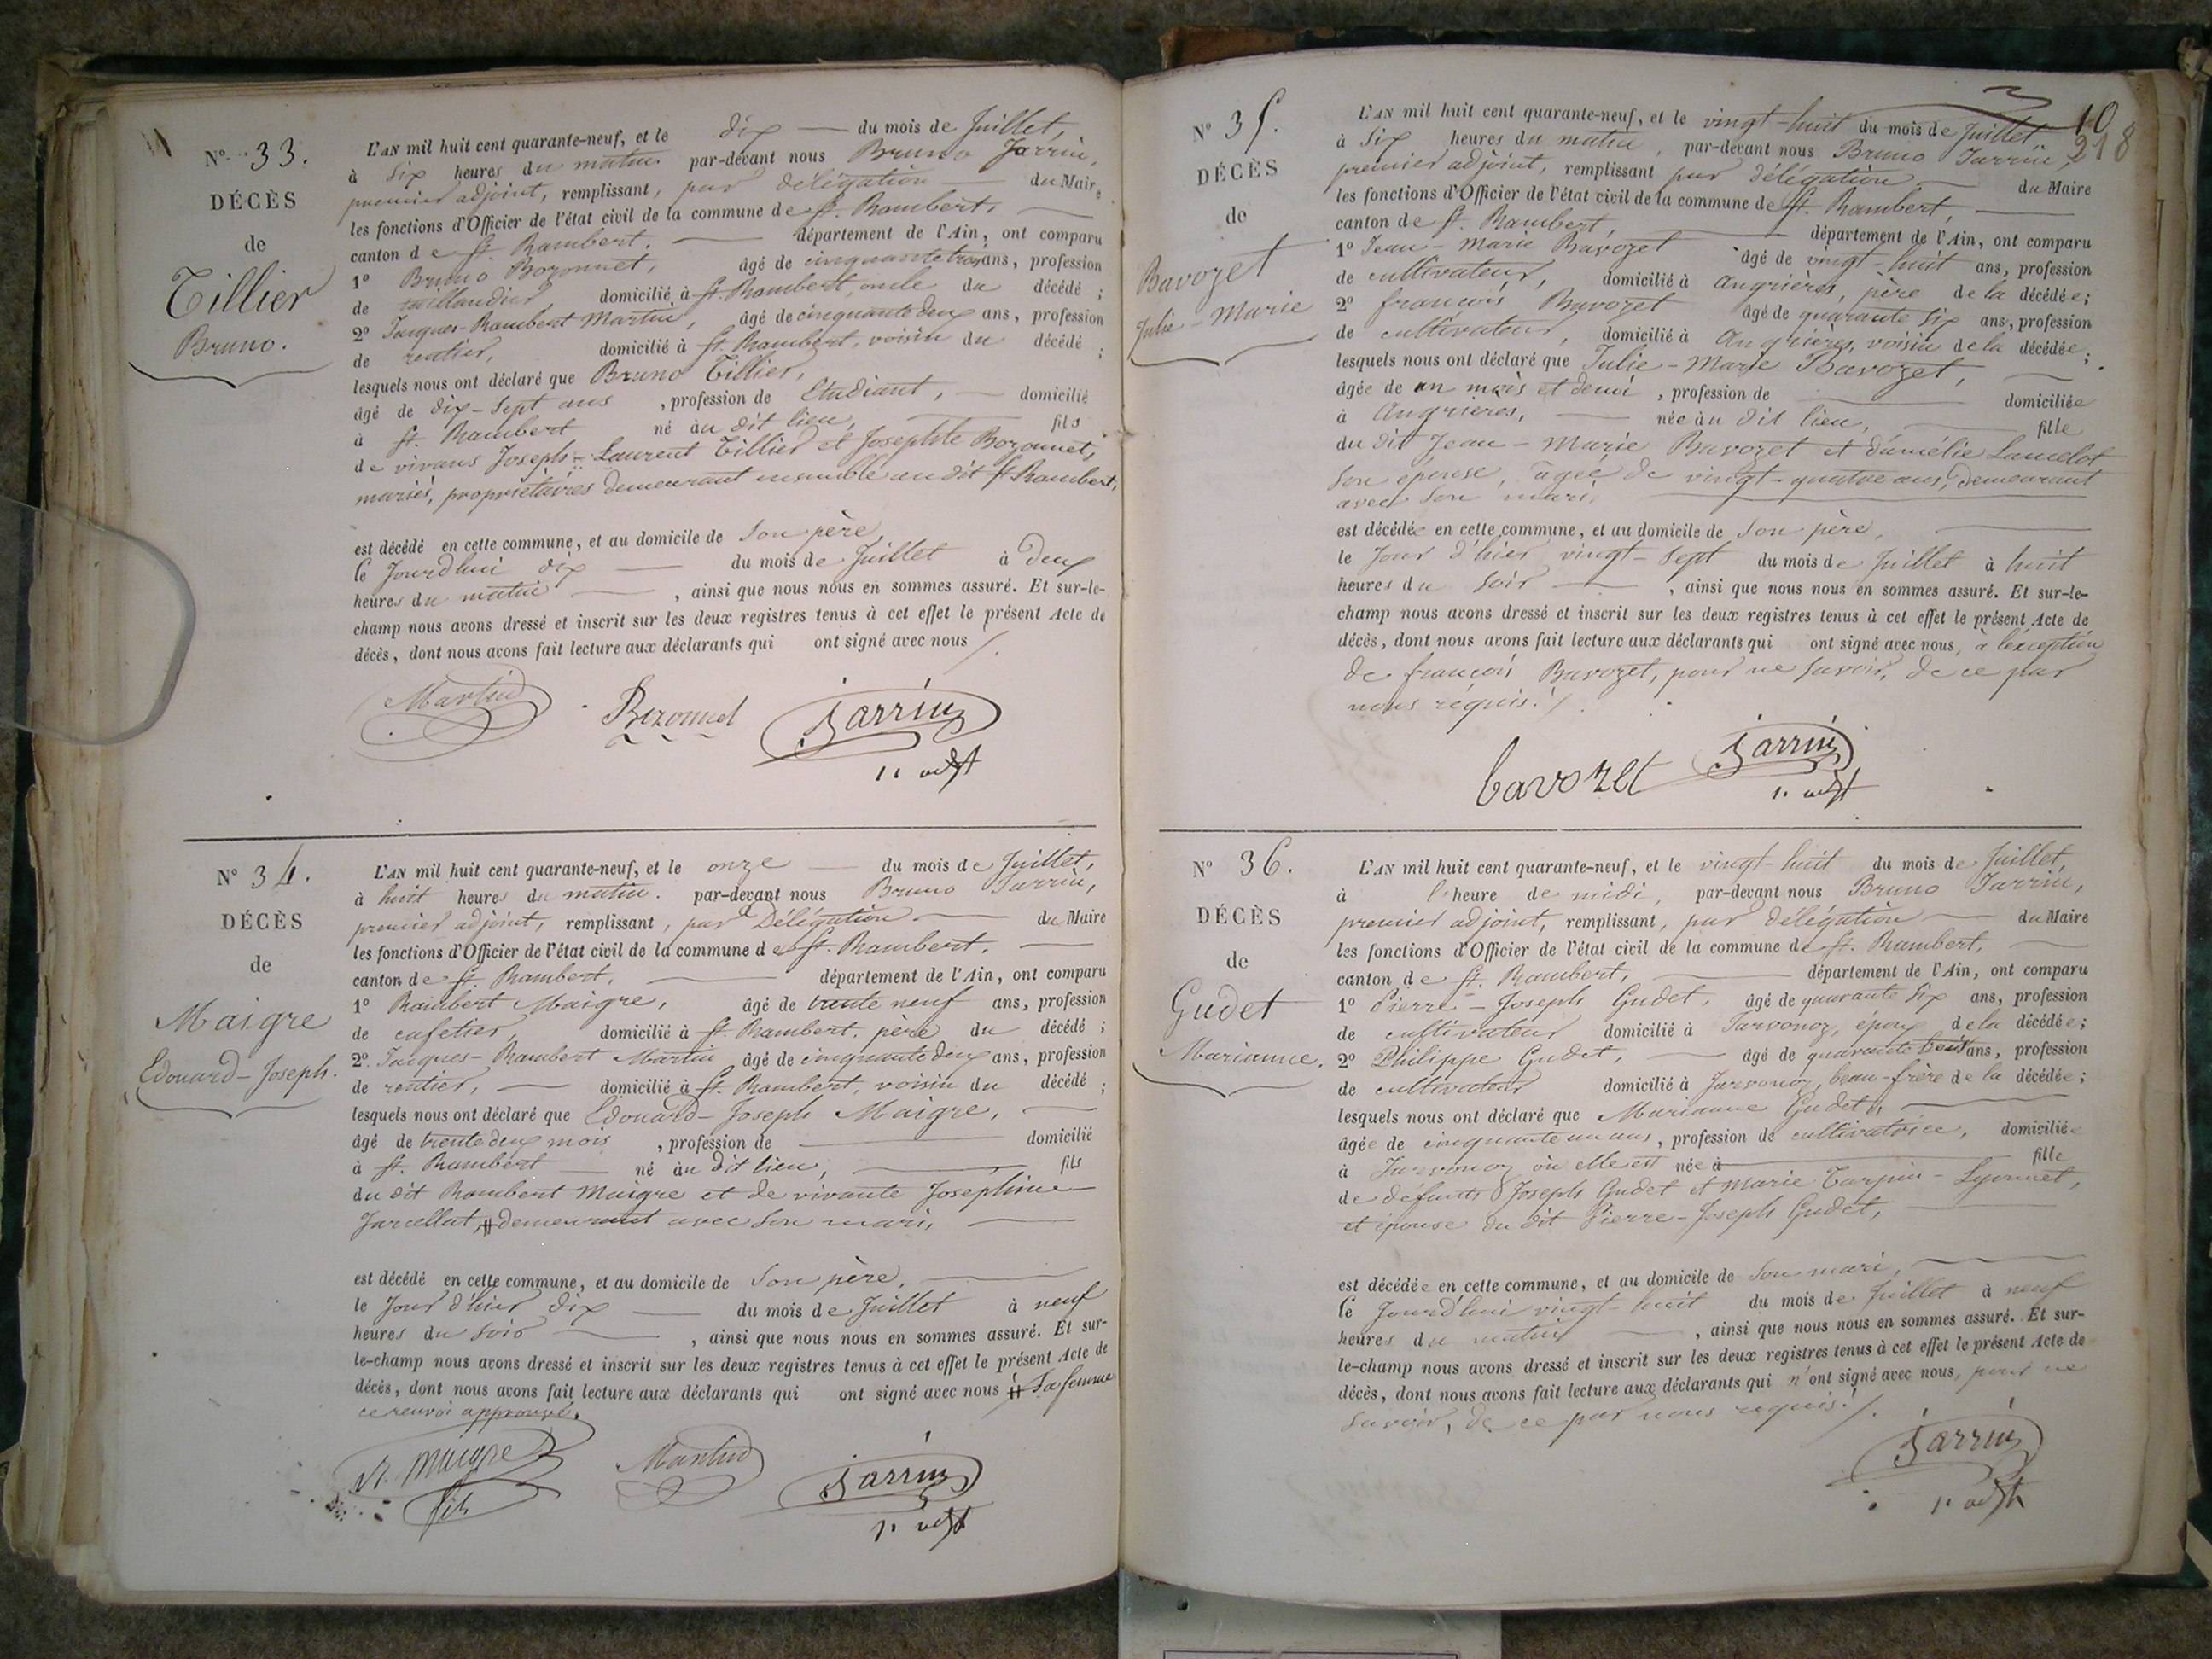 N° 33.
DÉCÈS
de
Tillier
Bruno.
L'AN mil huit cent quarante-neuf, et le dix — du mois de Juillet,
à six heures du matin par-devant nous Bruno Jarrin,
premier adjoint, remplissant, par délégation — du Maire
les fonctions d'Officier de l'état civil de la commune de St. Rambert, —
canton de St. Rambert. — département de l'Ain, ont comparu
1° Bruno Bozonnet, âgé de cinquante trois ans, profession
de taillandier, domicilié à St. Rambert, oncle du décédé ;
2° Jacques-Rambert Martin, âgé de cinquante deux ans, profession
de rentier, domicilié à St. Rambert, voisin du décédé ;
lesquels nous ont déclaré que Bruno Tillier,
âgé de dix-sept ans , profession de Etudiant, — domicilié
à St. Rambert né au dit lieu, — fils
de vivans Joseph-Laurent Tillier et Josephte Bozonnet,
mariés, propriétaires demeurant ensemble au dit St Rambert,
est décédé en cette commune, et au domicile de son père
le Jourdhui dix — du mois de Juillet à deux
heures du matin — , ainsi que nous nous en sommes assuré. Et sur-le-
champ nous avons dressé et inscrit sur les deux registres tenus à cet effet le présent Acte de
décès, dont nous avons fait lecture aux déclarants qui ont signé avec nous /.
Martin Bozonnet Jarrin
1er adjt
N° 34.
DÉCÈS
de
Maigre
Edouard-Joseph.
L'AN mil huit cent quarante-neuf, et le onze — du mois de Juillet,
à huit heures du matin. par-devant nous Bruno Jarrin,
premier adjoint, remplissant, par Délégation — du Maire
les fonctions d'Officier de l'état civil de la commune de St. Rambert. —
canton de St. Rambert. — département de l'Ain, ont comparu
1° Rambert Maigre, âgé de trente neuf ans, profession
de cafetier domicilié à St. Rambert. père du décédé ;
2° Jacques-Rambert Martin âgé de cinquante deux ans, profession
de rentier, — domicilié à St. Rambert, voisin du décédé ;
lesquels nous ont déclaré que Edouard-Joseph Maigre, —
âgé de trente deux mois , profession de — domicilié
à St. Rambert — né au dit lieu, — fils
du dit Rambert Maigre et de vivante Josephine
Jarcellat, # demeurant avec son mari, —
est décédé en cette commune, et au domicile de son père, —
le Jour d'hier dix — du mois de Juillet à neuf
heures du soir — , ainsi que nous nous en sommes assuré. Et sur-
le-champ nous avons dressé et inscrit sur les deux registres tenus à cet effet le présent Acte de
décès, dont nous avons fait lecture aux déclarants qui ont signé avec nous # sa femme
ce renvoi approuvé.
R. Maigre fils Martin Jarrin
1er adjt
10
218
N° 35.
DÉCÈS
de
Bavozet
Julie-Marie
L'AN mil huit cent quarante-neuf, et le vingt-huit du mois de Juillet
à six heures du matin, par-devant nous Bruno Jarrin,
premier adjoint, remplissant par délégation — du Maire
les fonctions d'Officier de l'état civil de la commune de St. Rambert, —
canton de St. Rambert, — département de l'Ain, ont comparu
1° Jean-Marie Bavozet âgé de vingt-huit ans, profession
de cultivateur, domicilié à Angrières, père de la décédée;
2° françois Bavozet âgé de quarante six ans, profession
de cultivateur, domicilié à Angrières, voisin de la décédée;
lesquels nous ont déclaré que Julie-Marie Bavozet, —
âgée de un mois et demi , profession de — domiciliée
à Angrières, — née au dit lieu, — fille
du dit Jean-Marie Bavozet et d'amélie Lancelot
son épouse, âgée de vingt-quatre ans, demeurant
avec son mari, —
est décédée en cette commune, et au domicile de son père, —
le Jour d'hier vingt-sept du mois de Juillet à huit
heures du soir — , ainsi que nous nous en sommes assuré. Et sur-le-
champ nous avons dressé et inscrit sur les deux registres tenus à cet effet le présent Acte de
décès, dont nous avons fait lecture aux déclarants qui ont signé avec nous, à l'exception
de françois Bavozet, pour ne savoir, de ce par
nous réquis. /.
bavozet Jarrin
1er adjt
N° 36.
DÉCÈS
de
Gudet
Marianne.
L'AN mil huit cent quarante-neuf, et le vingt-huit du mois de Juillet,
à l'heure de midi, par-devant nous Bruno Jarrin,
premier adjoint, remplissant, par délégation — du Maire
les fonctions d'Officier de l'état civil de la commune de St. Rambert, —
canton de St. Rambert, — département de l'Ain, ont comparu
1° Pierre-Joseph Gudet, âgé de quarante six ans, profession
de cultivateur domicilié à Jarvonoz, époux de la décédée;
2° Philippe Gudet, — âgé de quarante trois ans, profession
de cultivateur domicilié à Jarvonoz, beau-frère de la décédée;
lesquels nous ont déclaré que Marianne Gudet, —
âgée de cinquante un ans, profession de cultivatrice, domiciliée
à Jarvonoz où elle est née à — fille
de défunts Joseph Gudet et Marie Tarpin-Lyonnet,
et épouse du dit Pierre-Joseph Gudet, —
est décédée en cette commune, et au domicile de son mari, —
le Jourd'hui vingt-huit du mois de Juillet à neuf
heures du matin — , ainsi que nous nous en sommes assuré. Et sur-
le-champ nous avons dressé et inscrit sur les deux registres tenus à cet effet le présent Acte de
décès, dont nous avons fait lecture aux déclarants qui n'ont signé avec nous, pour ne
savoir, de ce par nous requis. /.
Jarrin
1er adjt